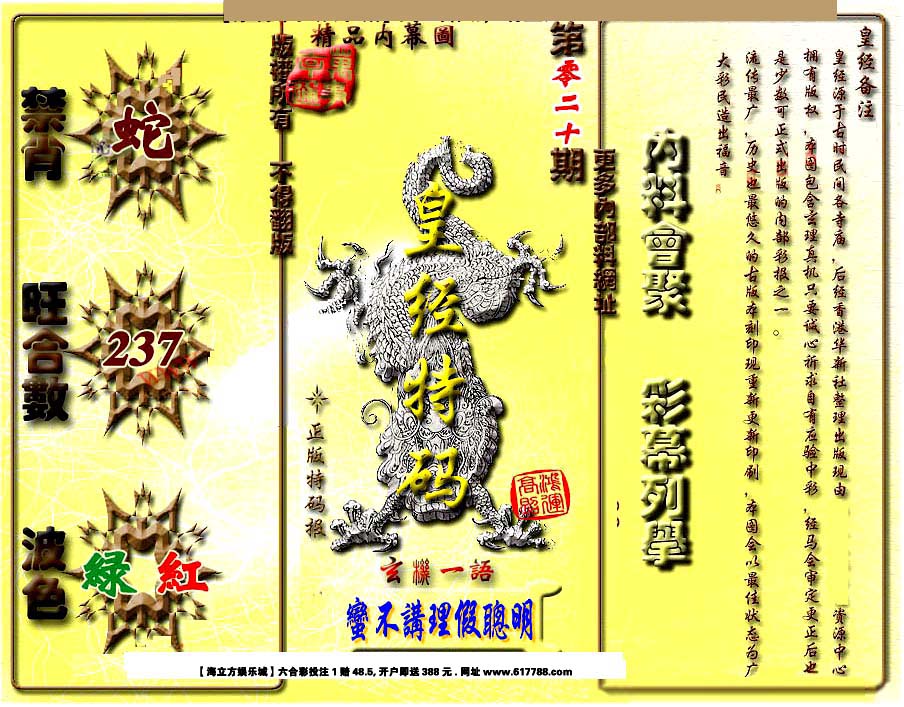 精品内幕圖
第零二十期
版權所有 不得翻版
更多内部料網址
禁肖
蛇
旺合數
237
波色
綠 紅
皇经特码
正版特码报
鴻運高照
玄機一語
蠻不講理假聰明
内料會聚 彩幕列舉
皇经备注
皇经源于古时民间各寺庙,后经香港华新社整理出版现由 资源中心
拥有版权,本图包含玄理真机只要诚心祈求自有应验中彩,经马会审定更正后也
是少数可正式出版的内部彩报之一。
流传最广,历史也最悠久的古版本刻印现重新更新印刷,本图会以最佳状态为广
大彩民造出福音
【海立方娱乐城】六合彩投注1赔48.5,开户即送388元.网址www.617788.com